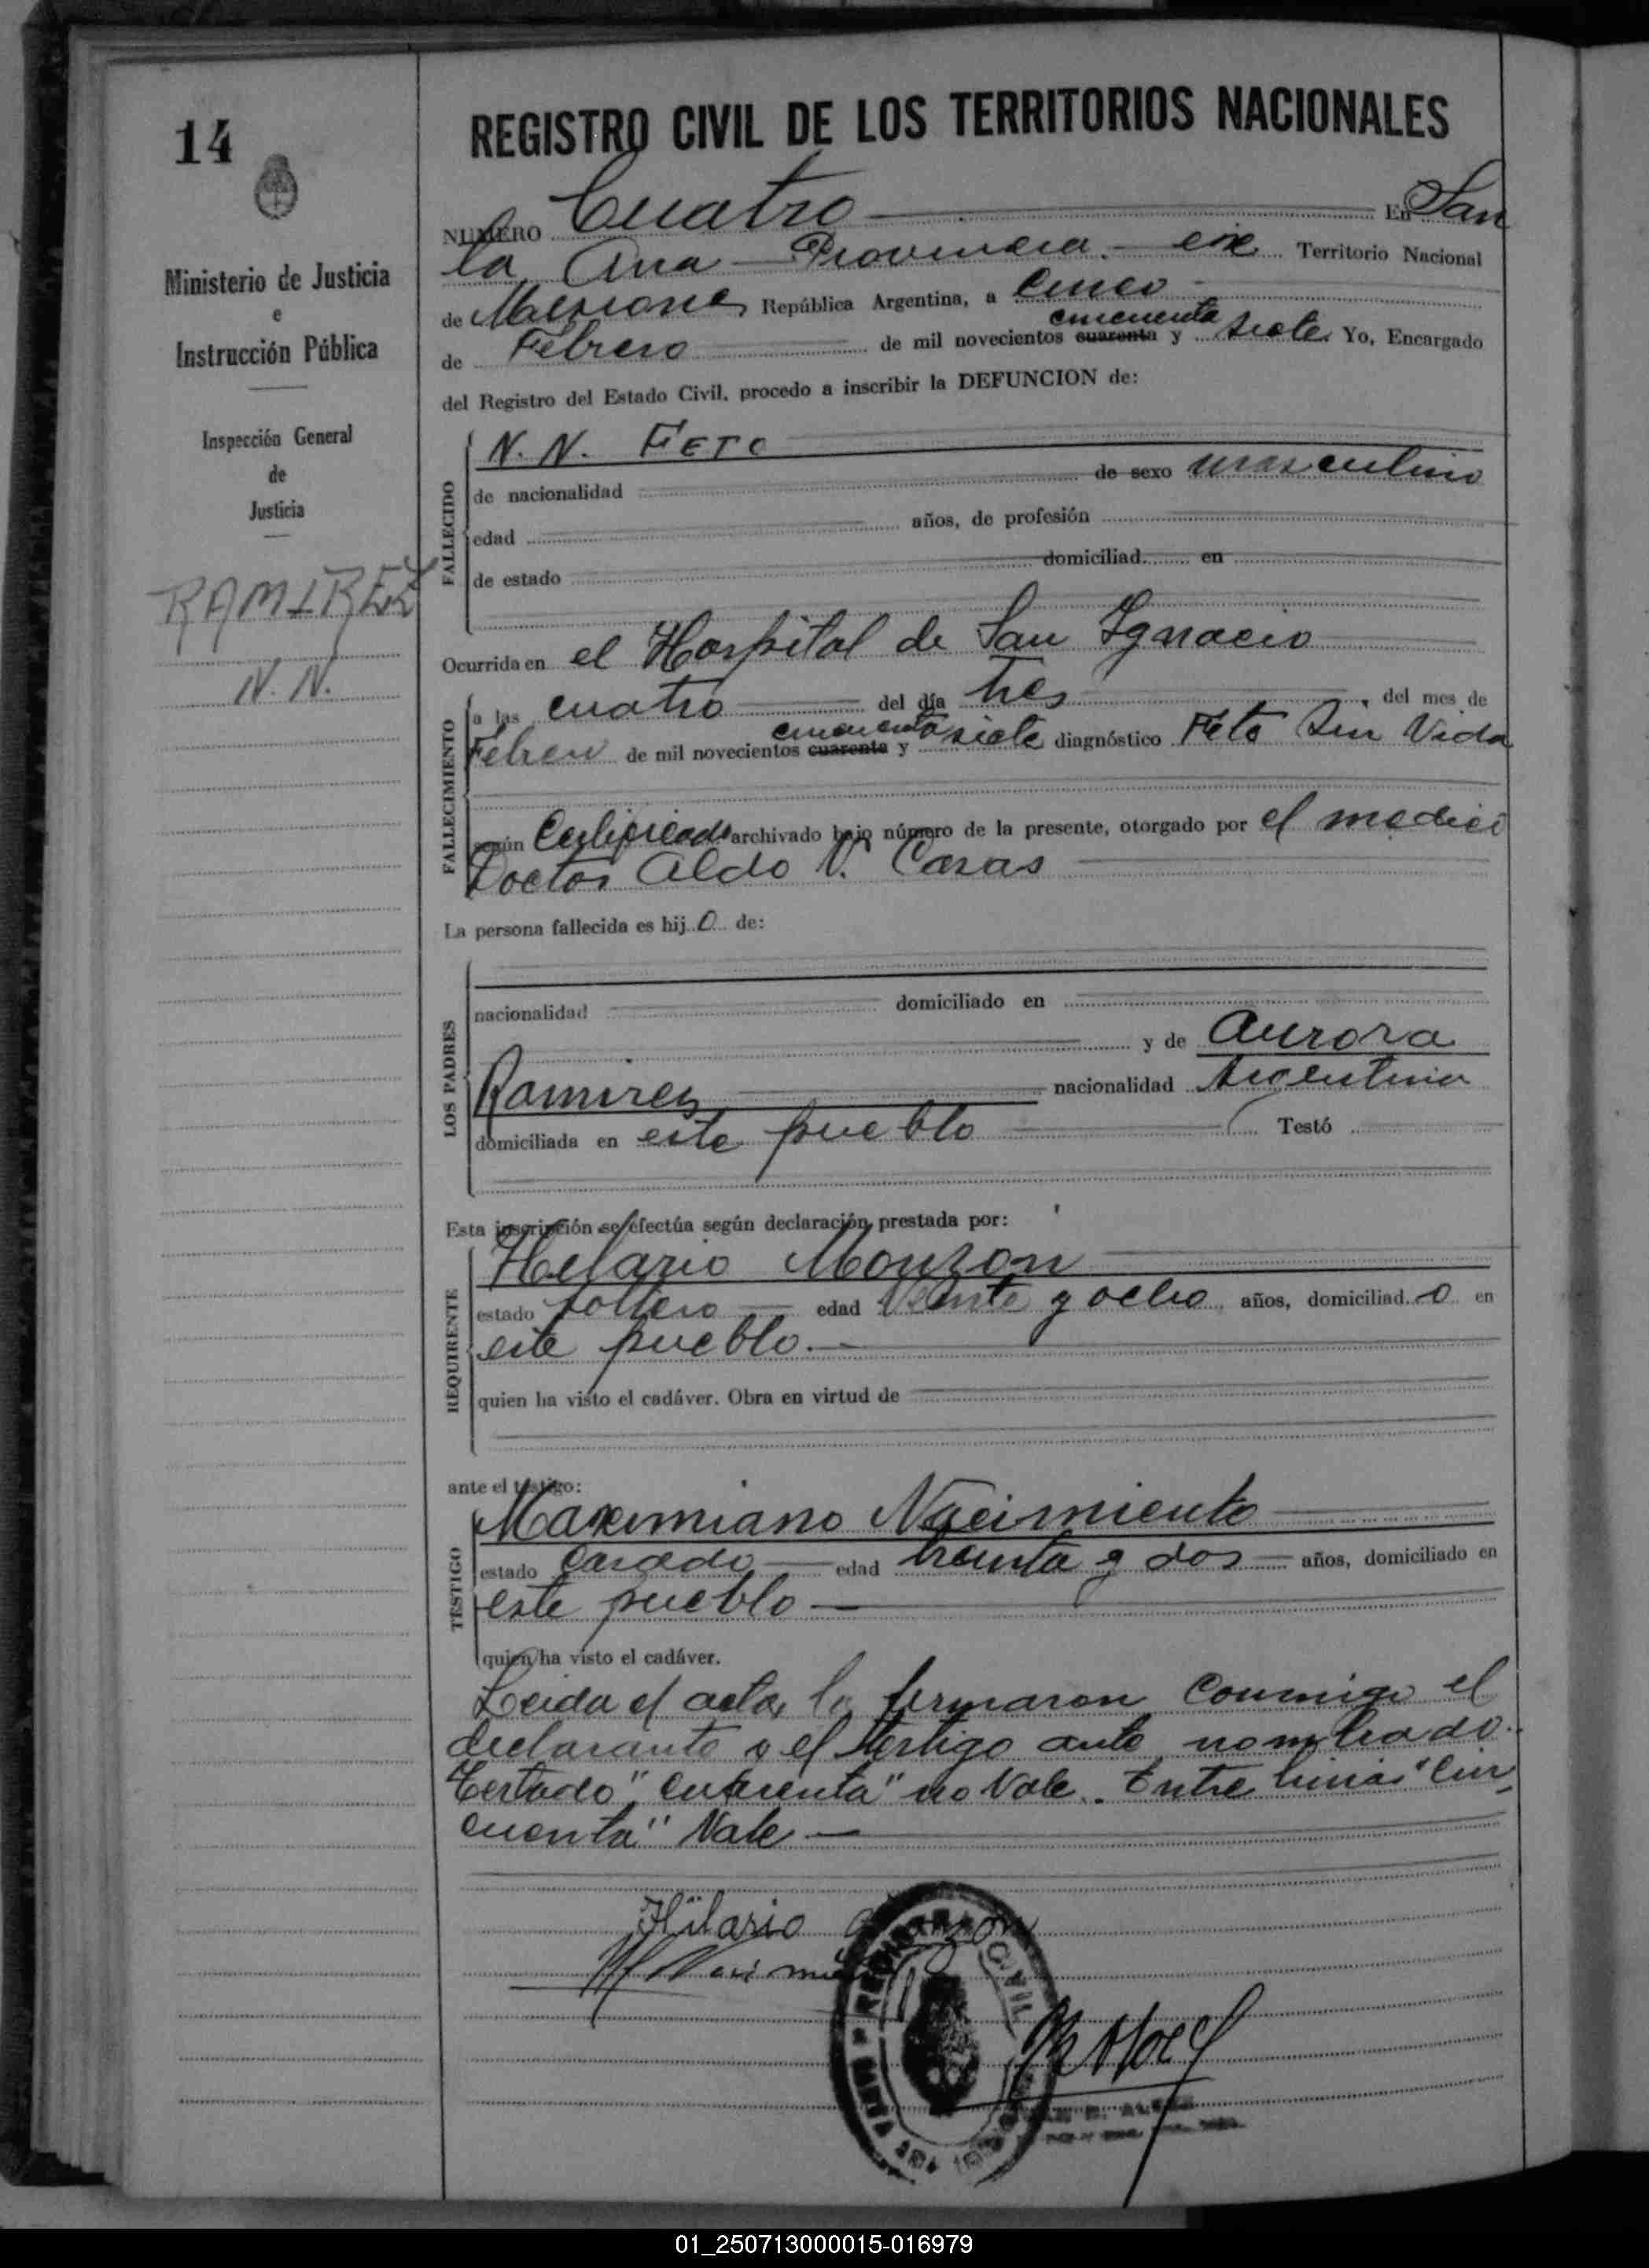 14
Ministerio de Justicia
e
Instrucción Pública
Inspección General
de
Justicia
RAMIREZ
N. N.
REGISTRO CIVIL DE LOS TERRITORIOS NACIONALES
NUMERO Cuatro En San
ta Ana Provincia Territorio Nacional
de Misiones República Argentina, a Cinco
cincuenta
de Febrero de mil novecientos cuarenta y siete Yo, Encargado
del Registro del Estado Civil, procedo a inscribir la DEFUNCION de:
FALLECIDO
N. N. FETO
de nacionalidad de sexo masculino
edad años, de profesión
de estado domiciliad en
Ocurrida en el Hospital de San Ignacio
FALLECIMIENTO
a las cuatro del día tres del mes de
cincuenta
Febrero de mil novecientos cuarenta y siete diagnóstico Feto Sin Vida
según Certificado archivado bajo número de la presente, otorgado por el medico
Doctor Aldo V. Casas
La persona fallecida es hijo de:
LOS PADRES
nacionalidad domiciliado en
y de Aurora
Ramirez nacionalidad Argentina
domiciliada en este pueblo Testó
Esta inscripción se efectúa según declaración prestada por:
REQUIRENTE
Helario Monzon
estado soltero edad Veinte y ocho años, domiciliado en
este pueblo.
quien ha visto el cadáver. Obra en virtud de
ante el testigo:
TESTIGO
Maximiano Nacimiento
estado Casado edad treinta y dos años, domiciliado en
este pueblo
quien ha visto el cadáver.
Leida el acta, la firmaron conmigo el
declarante y el testigo ante nombrado.
Testado "cuarenta" no Vale. Entre linias "Cin
cuenta" Vale
Hilario Monzon
M Nacimiento
REGISTRO CIVIL
SANTA ANA
01_250713000015-016979